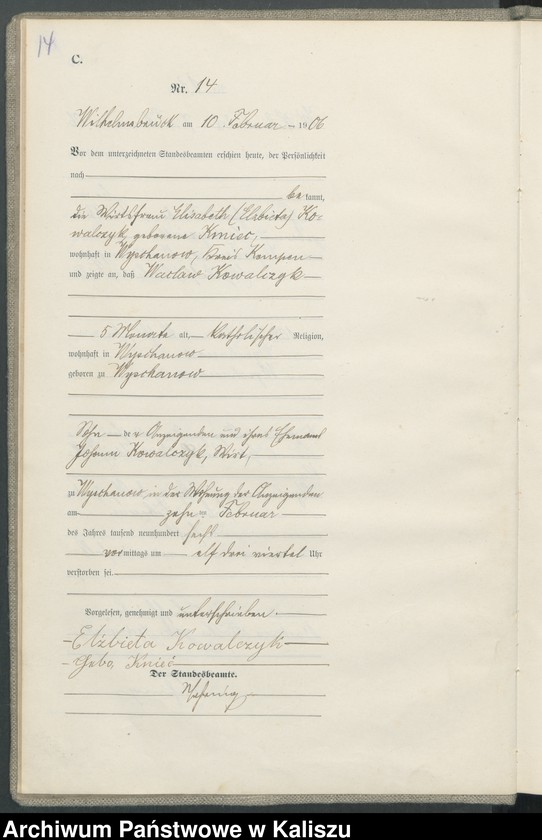 14
C.
Nr. 14
Wilhelmsbrück am 10 Februar 1906
Vor dem unterzeichneten Standesbeamten erschien heute, der Persönlichkeit
nach
bekannt,
die Wirtsfrau Elisabeth (Elzbieta) Ko-
walczyk, geborene Kmiec,
wohnhaft in Wyschanow, Kreis Kempen
und zeigte an, daß Waclaw Kowalczyk
5 Monate alt, katholischer Religion,
wohnhaft in Wyschanow
geboren zu Wyschanow
Sohn der Anzeigenden und ihres Ehemanns
Johann Kowalczyk, Wirt,
zu Wyschanow, in der Wohnung der Anzeigenden
am zehn ten Februar
des Jahres tausend neunhundert sechs
vormittags um elf drei viertel Uhr
verstorben sei.
Vorgelesen, genehmigt und unterschrieben.
Elżbieta Kowalczyk
Gebo. Kmieć
Der Standesbeamte.
Archiwum Państwowe w Kaliszu